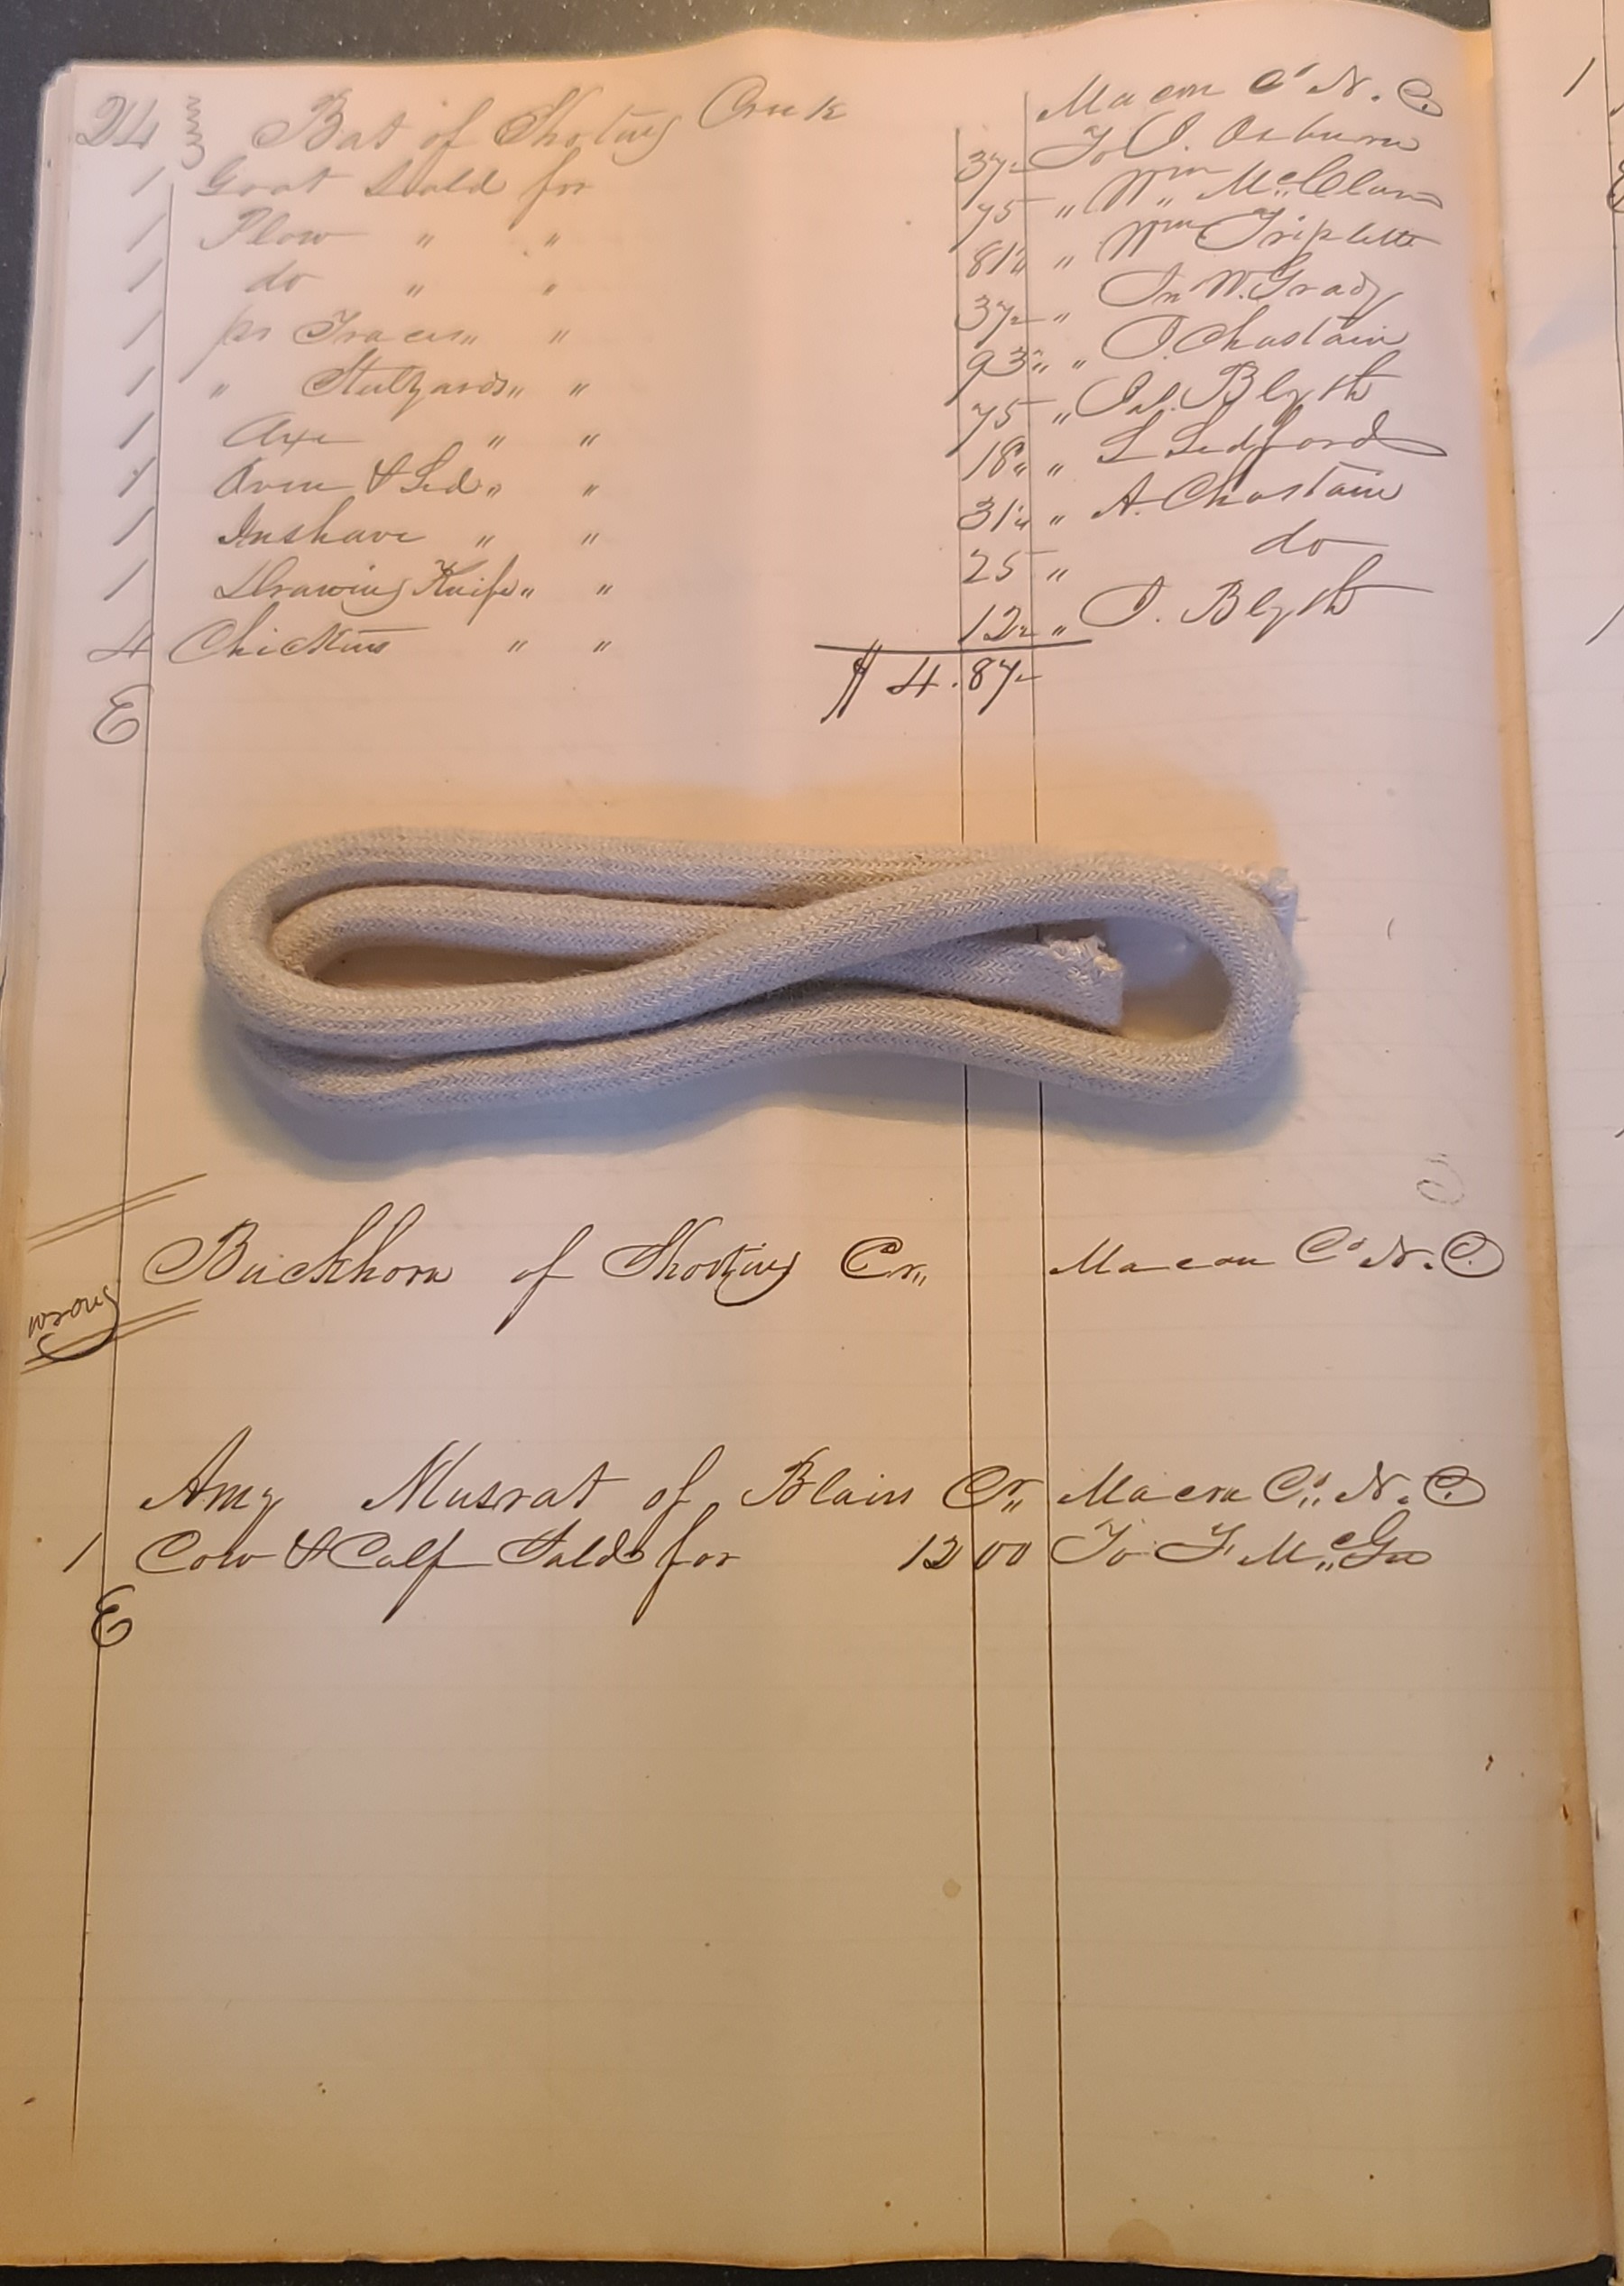 24 Bat of Shoting Creek Macon Co N. C.
1 Goat Sold for 37 2 To J. Osburn
1 Plow " " 75 " Wm McClure
1 do " " 81 4 " Wm Triplett
1 pr Traces " " 37 2 " Jn W. Grady
1 " Stillyards " " 93 " J. Chastain
1 Axe " " 75 " Jal. Blyth
1 Oven & Led " " 18 " L Ledford
1 Inshave " " 31 4 " A. Chastain
1 Drawing Knife " " 25 " do
4 Chickens " " 12 2 " J. Blyth
$ 4.87 2
E
Buckhorn of Shoting Cr,, Macon Co N. C.
wrong
Amy Musrat of Blair Cr,, Macon Co,, N. C.
1 Cow & Calf Sold for 12 00 To F McGee
E